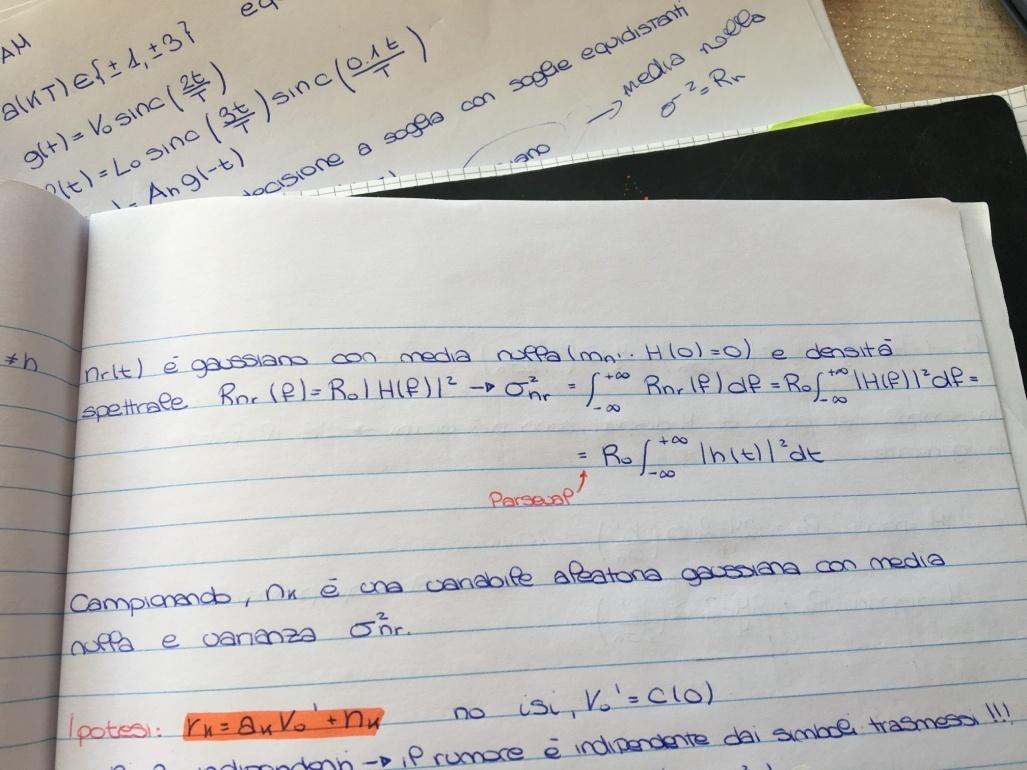 AM
a(kT) ∈ {±1, ±3}
g(t) = V₀ sinc(2t/T)
(t) = L₀ sinc(3t/T) sinc(0.1t/T)
An g(-t)
decisione a soglia con soglie equidistanti
→ media nulla
σ² = Rn
≠h
nr(t) é gaussiano con media nulla (mn · H(0)=0) e densitá
spettrale Rnr(f) = R₀|H(f)|² → σ²nr = ∫_{-∞}^{+∞} Rnr(f)df = R₀∫_{-∞}^{+∞} |H(f)|²df =
= R₀∫_{-∞}^{+∞} |h(t)|²dt
Parseval
Campionando, nk é una variabile aleatoria gaussiana con media
nulla e varianza σ²nr.
Ipotesi: rk = akV₀' + nk no isi, V₀' = C(0)
indipendenti → il rumore é indipendente dai simboli trasmessi!!!